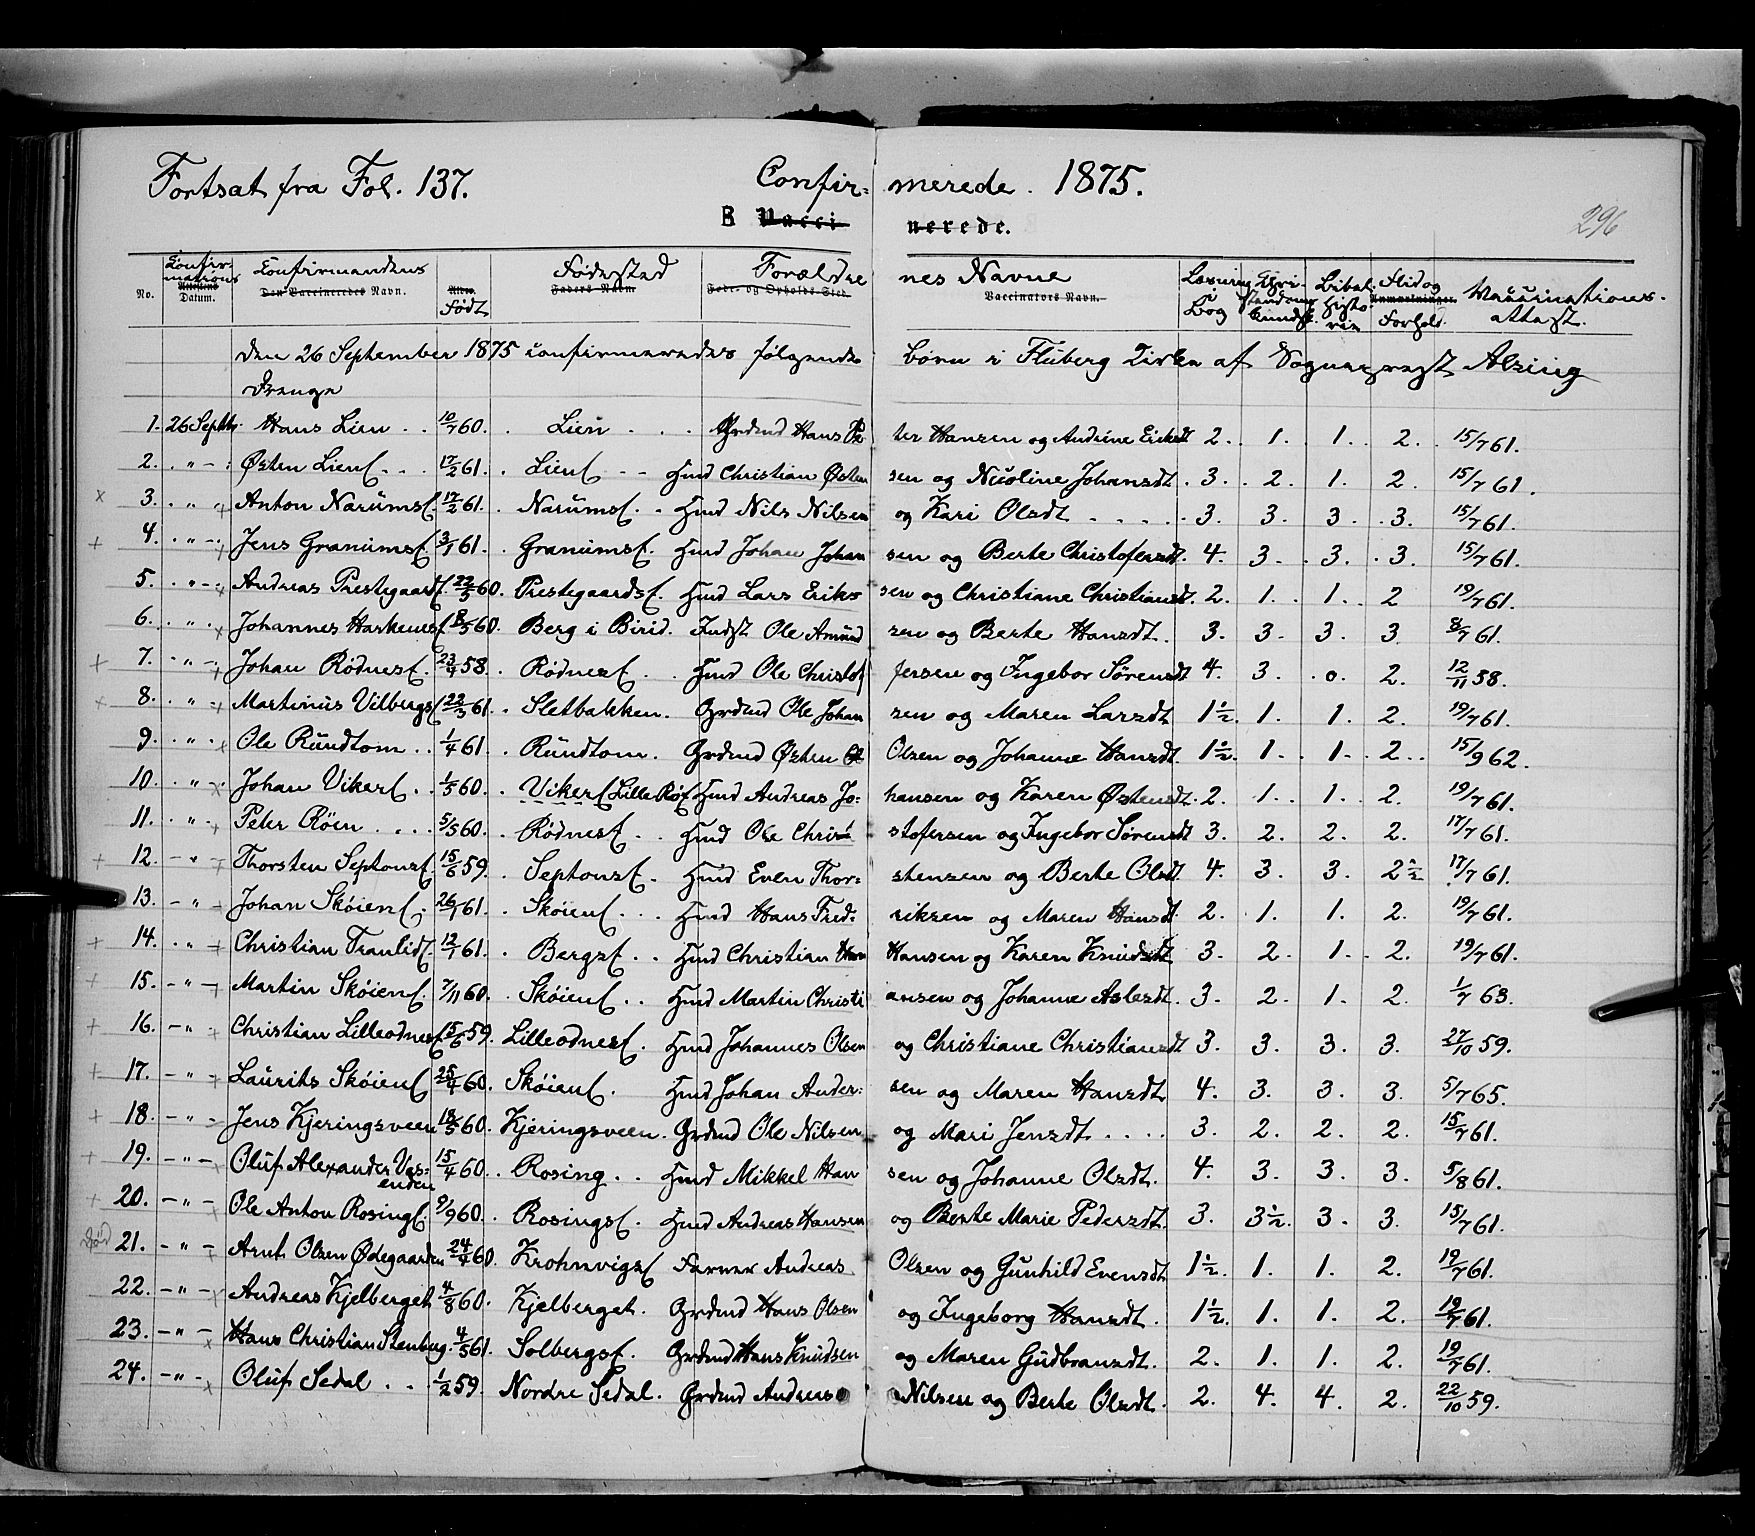 Fortsat fra Fol. 137. Confir- merede. 1875.
B Vacci nerede.
296
No. Confirmations Attestens Datum. Confirmandens Den Vaccineredes Navn. Alter. Født Fødested Faders Navn Forældre Føde- og Opholds-Sted. nes Navne Vaccinators Navn. Læsning i Bog Christendoms Kundsk. Bibelhistorien Flid og Anmærkninger. Forhold. Vaccinations- attest.
Den 26 September 1875 confirmeredes følgende børn i Fluberg Kirke af Sogneprest Alsing
Drenge
1. 26 Septbr. Hans Lien . . 10/7 60. . Lien . . . Grdmd Hans Pe ter Hansen og Andrine Eriksdt 2. 1. 1. 2. 15/7 61.
2. . " - : Østen Lienf. . . 17/2 61. . Lienf - - Hmd Christian Østen sen og Nicoline Johansdt . 3. . 2. 1. 2. 15/7 61.
x 3. . " . + Anton Narumsf. 17/2 61. . Narumsf. . Hmd Nils Nilsen og Kari Olsdt - . . . . 3. 3. 3. . 3. 15/7 61.
+ 4. . " - . Jens Granumsf. 3/1 61. . Granumsf. Hmd Johan Johan sen og Berte Christofersdt. 4. 3. . 3. . 3. 15/7 61.
5. . " - . + Andreas Prestegaardf. 22/5 60. Prestegaardsf. Hmd Lars Eriks sen og Christiane Christiansdt. 2. 1. . 1. . 2 19/7 61.
6. . " . . x Johannes Harkenesf 8/5 60. Berg i Birid. Indst Ole Amund sen og Berte Hansdt. 3. 3. 3. 3. 8/7 61.
+ 7. . " - . + Johan Rødnesf. 23/4 58. . Rødnesf . Hmd Ole Christof fersen og Ingebor Sørensdt 4. 3. . o. 2. 12/11 58.
x 8. . " . + Martinus Vilbergsf 22/3 61. . Sletbakken. Grdmd Ole Johan sen og Maren Larsdt 1½. 1. 1. 2. 19/7 61.
9. . " . x Ole Rundtom . . 1/4 61. . Rundtom. Grdmd Østen Ol Olsen og Johanne Hansdt 1½. 1. 1. . 2 . . 15/9 62.
10. . " . x Johan Vikerf . . 1/5 60. . Vikerf Lille Røf Hmd Andreas Jo- hansen og Karen Østensdt. 2. . 1. . 1. . 2. 19/7 61.
11. . " - . + Peter Röen . . . . 5/5 60. . Rødnesf. . Hmd Ole Chri stofersen og Ingebor Sørensdt 3. 2. 2. 2. 17/7 61.
+ 12. - " - + Thorsten Septonsf. 15/6 59. . Septonsf. Hmd Even Thor- stensen og Berte Olsdt 4. 3. 3. 2½ 17/7 61.
13. - " - Johan Skøienf. 26/1 61. . Skøienf . . . Hmd Hans Fred- riksen og Maren Hansdt. 2. 1. 1. 2. 19/7 61.
+ 14. . " - + Christian Tranlidf. 12/1 61. . Bergsf. . . Hmd Christian Han Hansen og Karen Knudsdt 3. 2. 1. . 2. 19/7 61.
+ 15. - " - + Martin Skøienf. 7/11 60. . Skøienf . . Hmd Martin Christi ansen og Johanne Aslesdt. 3. 2. 1. 2. 1/7 63.
+ 16. - " - + Christian Lilleodnesf 15/6 59. Lilleodnesf. Hmd Johannes Olsen og Christiane Christiansdt 3. 3. 3. 3. 27/10 59.
+ 17. - " - + Laurits Skøienf 25/4 60. Skøienf. Hmd Johan Ander- sen og Maren Hansdt. 4. 3. 3. 3. 5/7 65.
+ 18. - " - + Jens Kjeringsveen 18/5 60. Kjeringsveen. Grdmd Ole Nilsen og Mari Jensdt . . . . 3. 2. 2. 2. 15/7 61.
+ 19. - " - + Oluf Alexander Ves- 15/4 60. . Rosing. . Hmd Mikkel Han sen og Johanne Olsdt. 4. 3. 3. 3. 5/8 61.
enden
+ 20. - " - + Ole Anton Rosingf. 9/9 60. . Rosingsf. Hmd Andreas Hansen og Berte Marie Pedersdt. 3. 3½. 3. 3. 15/7 61.
Død 21. - " - + Arnt Olsen Ødegaarden 24/4 60. Krohnvigsf Farver Andreas Olsen og Gunhild Evensdt 1½. 1. 1. 2. 19/7 61.
22. - " - x Andreas Kjelberget 4/8 60. Kjelberget. Grdmd Hans Olsen og Ingeborg Hansdt. 1½. 1. 1. 2. 19/7 61.
23. - " - x Hans Christian Stenberg. 4/5 61. Solbergsf. Grdmd Hans Knudsen og Maren Gudbransdt. 2. 1. 1. 2. 19/7 61.
24. - " - x Oluf Sedal . . . 1/2 59. Nordre Sedal. Grdmd Andreas Nilsen og Berte Olsdt. 2. 4. 4. 2. 22/10 59.